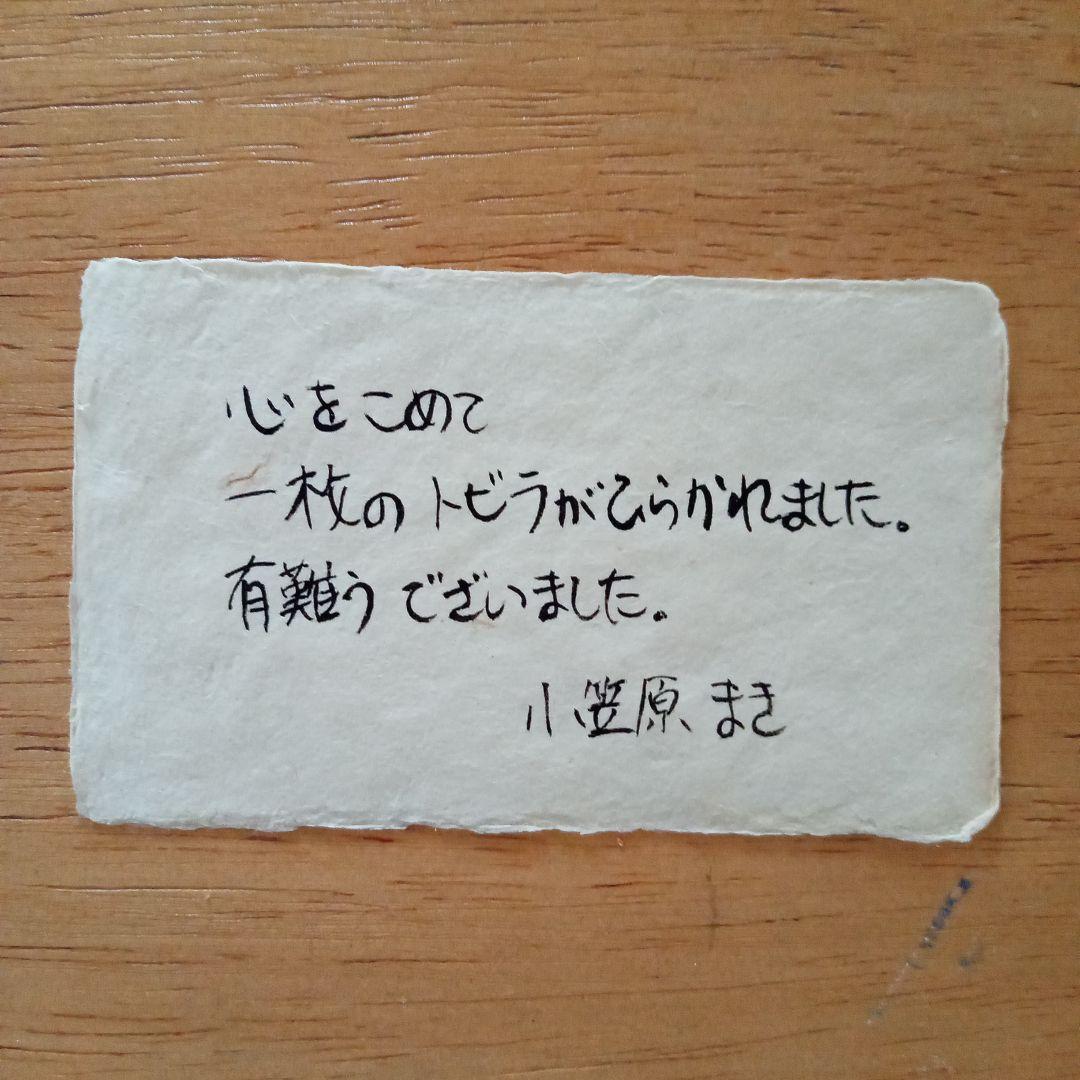 心をこめて
一枚のトビラがひらかれました。
有難うございました。
小笠原まき